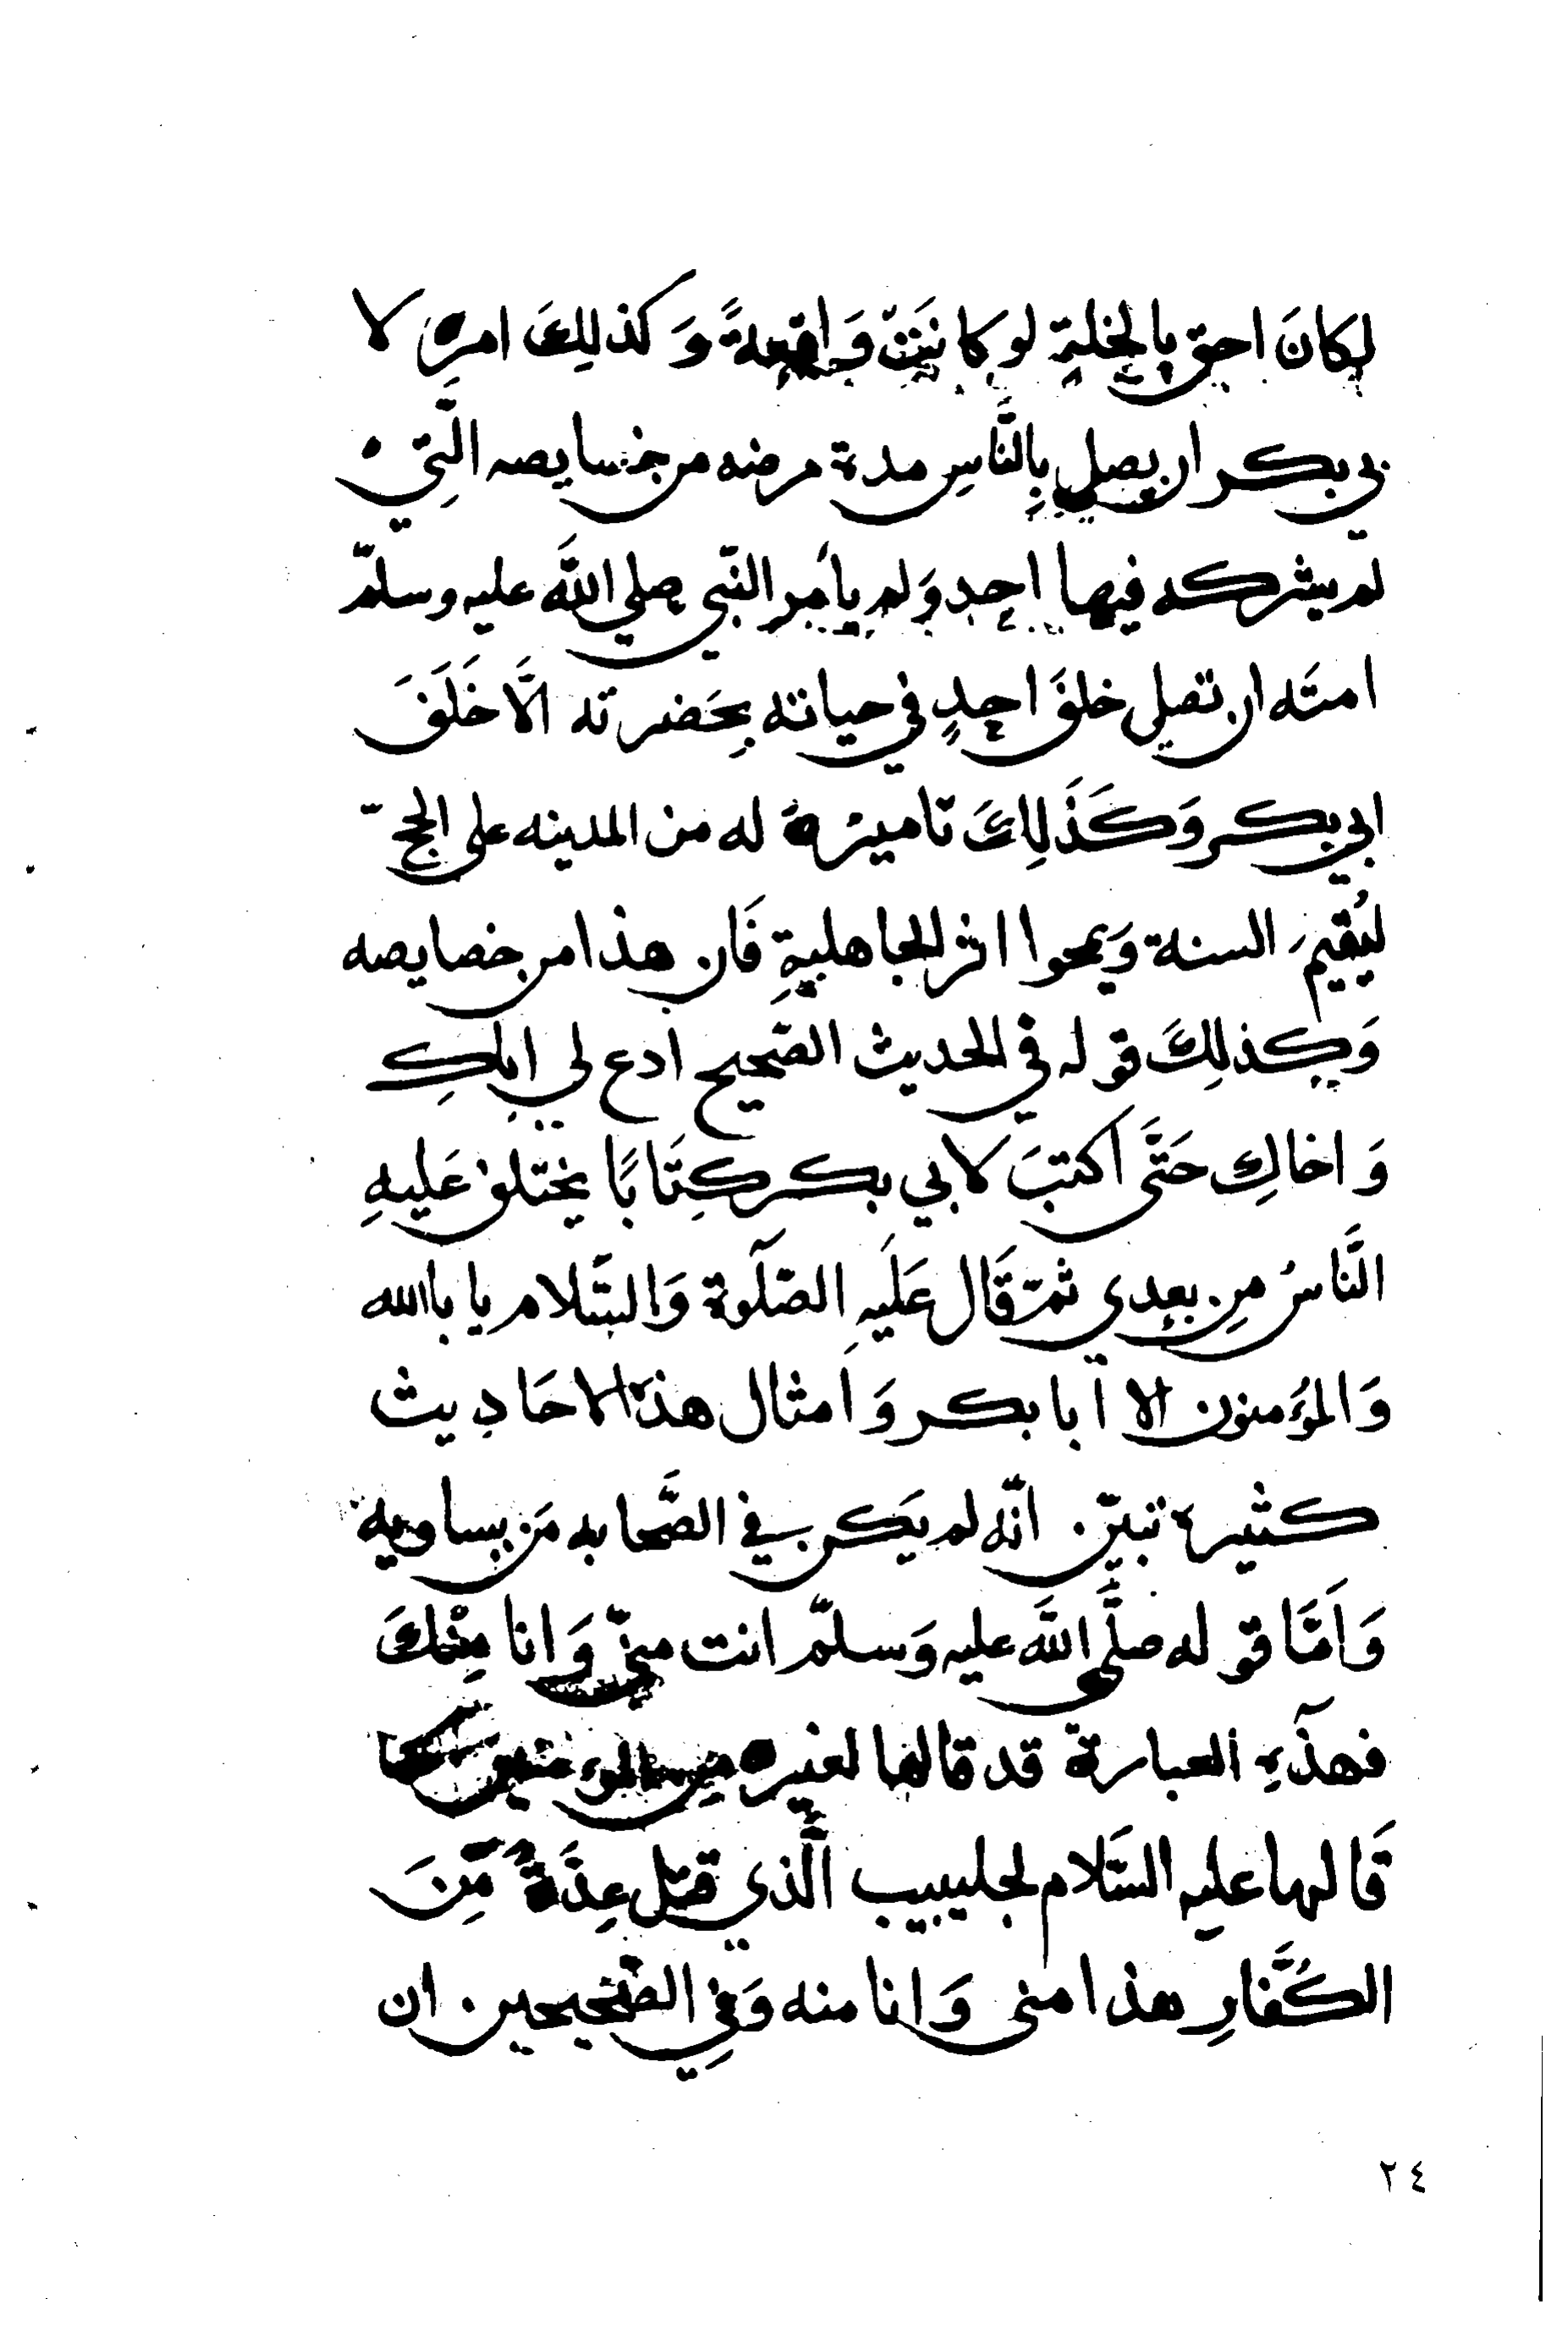 لكانَ احق بالخلةِ لو كانَتْ وَاقعةً وَكذلِكَ امره لا
بي بكر ان يصلي بِالنَّاسِ مدة مرضه من خصايصه الَّتِيْ
لم يشركه فيها احد وَلم يأمر النّبي صلي اللَّه عليه وسلّم
امتَه ان تصلي خلفَ احدٍ في حياته بِحَضرته الَّا خَلَفَ
ابي بكر وَكَذَلِكَ تاميرُهُ له من المدينه على الحجّ
ليُقيمَ السنة وَيمحوا اثر الجاهليةِ فَان هذا من خصايصه
وَكذلِكَ قوله في الحديث الصّحيح ادع لي اباكِ
وَاخاكِ حَتَّى اكتبَ لابي بكر كِتَابًا يختلف عَليهِ
النَّاسُ مِن بعدي ثمّ قَال عَلَيهِ الصّلَوة وَالسَّلام يا باالله
وَالمؤمنون الا ابا بكر وَامثال هذه الاحَادِيث
كثيرة تبيّن انّه لم يَكن في الصَّحابه مَن يساويه
وَاَمَّا قوله صلَّى اللَّه عليه وَسلّم انت منّي وَانا مِنْكَ
فهذَهِ العبارة قد قالها لغيره مِن المؤمنين كما
قَالها عليه السَّلام لجليبيب الَّذي قتل عِدَّةً مِّنَ
الكُفَّارِ هذا مني وَانا منه وَفِي الصَّحيحين ان
٢٤